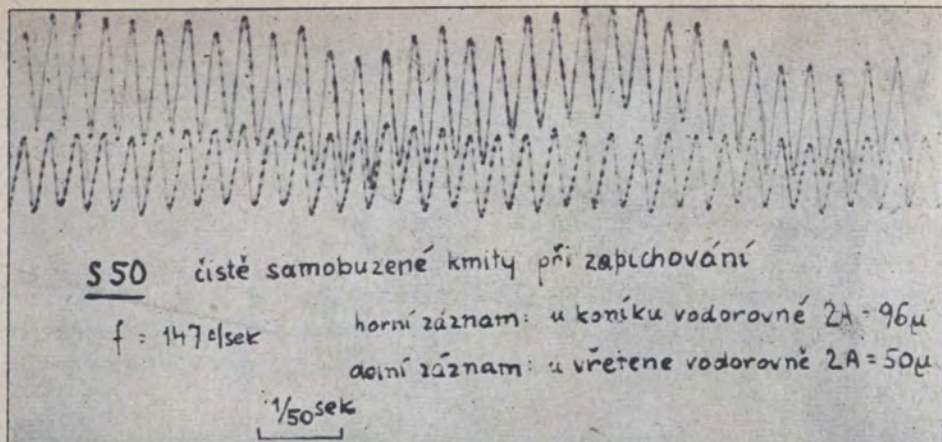 S 50 čistě samobuzené kmity při zapichování
f = 147 c/sek
horní záznam: u koníku vodorovné 2A = 96µ
dolní záznam: u vřetene vodorovně 2A = 50µ
1/50 sek